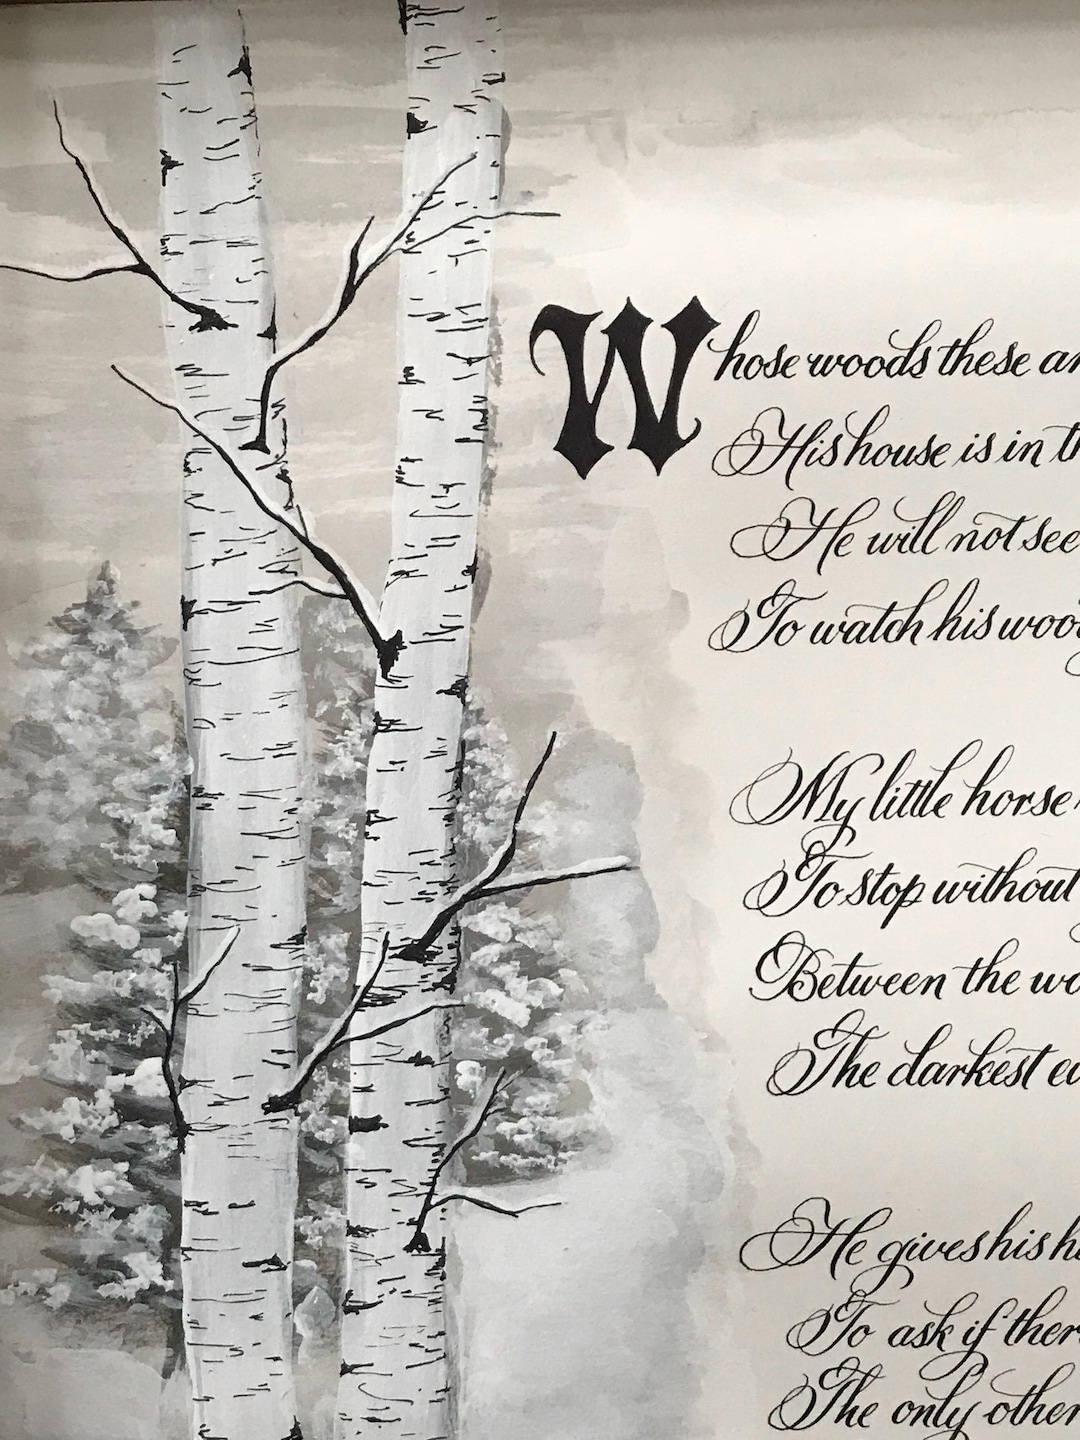 Whose woods these ar
His house is in th
He will not see
To watch his wood
My little horse
To stop without
Between the wo
The darkest ev
He gives his ha
To ask if ther
The only other